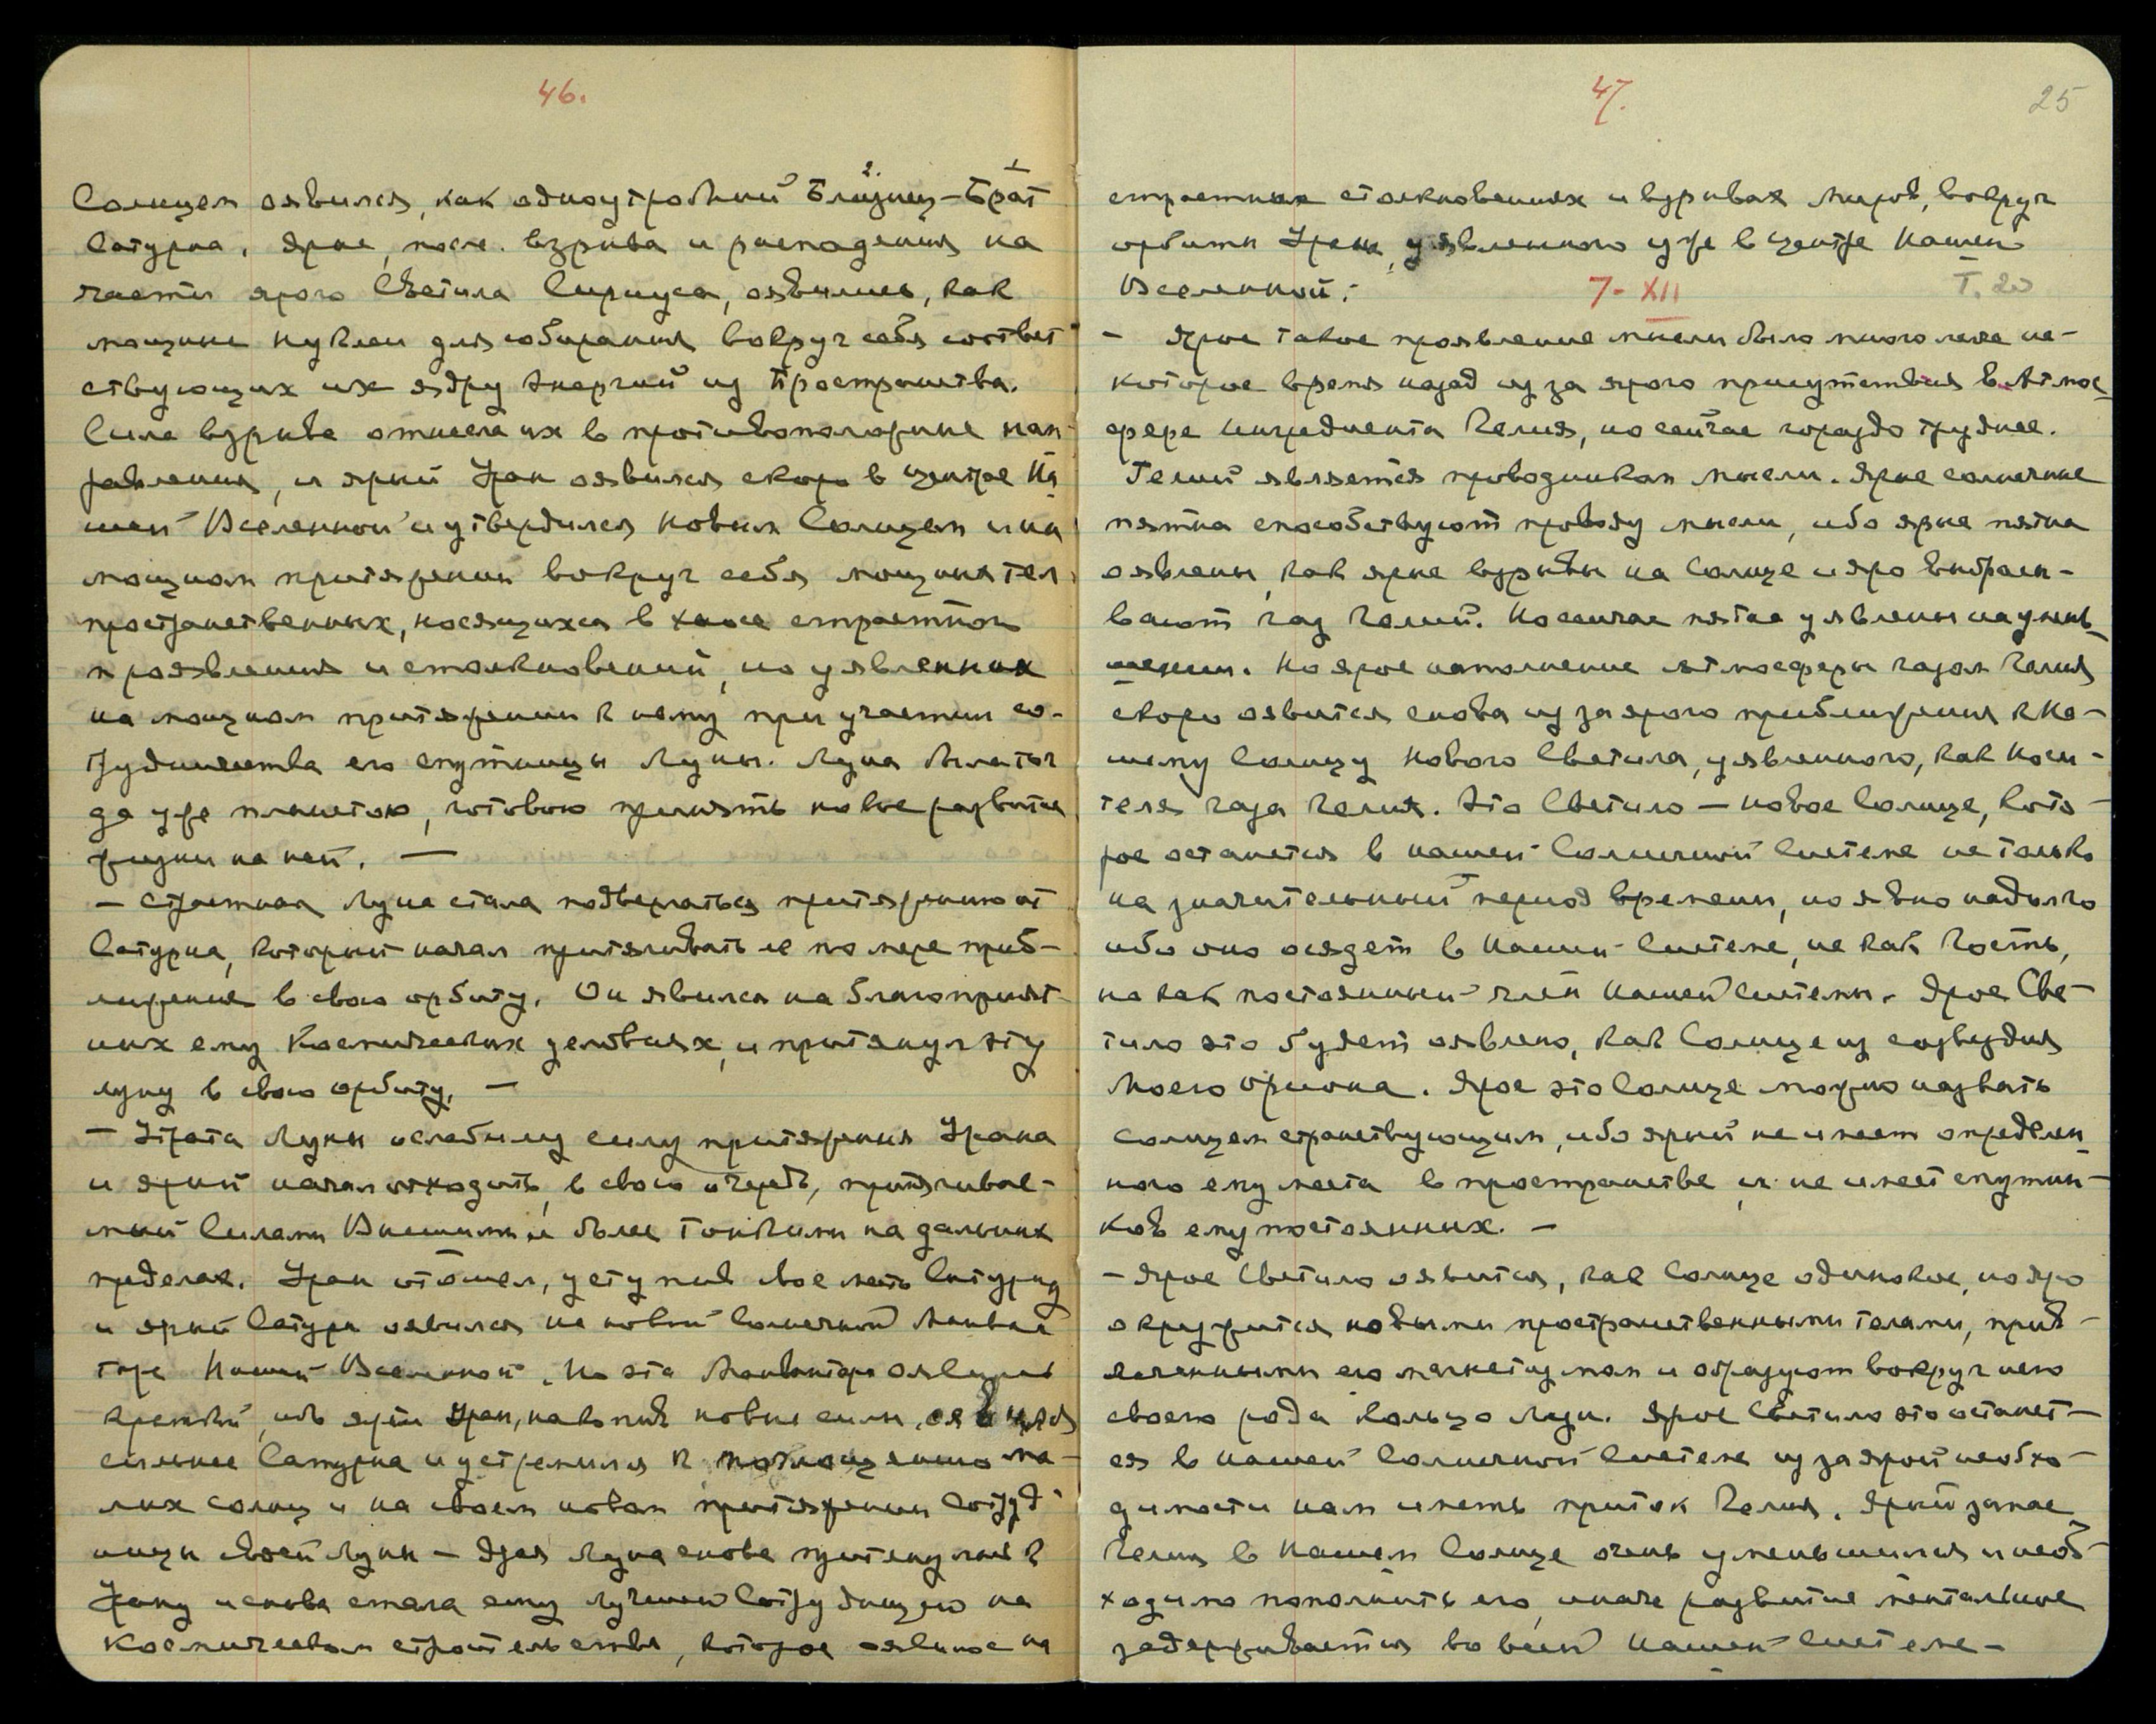 46.
Солнцем оявился, как одноутробный Близнец-Брат
2. 1
Сатурна. Ярые, после взрыва и распадения на
части ярого Светила Сириуса, оявились, как
мощные нуклеи для собирания вокруг себя соответ
ствующих их ядру Энергий из Пространства.
Сила взрыва отнесла их в противоположные нап-
равления, и ярый Уран оявился скоро в центре На
шей Вселенной и утвердился новым Солнцем и на
мощном притяжении вокруг себя мощных тел
пространственных, носящихся в хаосе страстного
проявления и столкновений, но уявленных
на мощном притяжении к нему при участии со-
трудничества его спутницы Луны. Луна была тог
да уже планетою, готовою принять новое развитие
жизни на ней. —
— Страстная Луна стала подвергаться притяжению от
Сатурна, который начал притягивать ее по мере приб-
лижения в свою орбиту. Он явился на благоприят-
ных ему Космических условиях, и притянул эту
луну в свою орбиту. —
— Утрата Луны ослабила силу притяжения Урана
и ярый начал отходить, в свою очередь, притягивае-
мый Силами Внешними и более тонкими на дальних
пределах. Уран отошел, уступив свое место Сатурну
и ярый Сатурн оявился на новой Солнечной Манван
таре Нашей Вселенной. Но эта Манвантара оявилась
краткой, ибо ярый Уран, накопив новые силы, оявился
сильнее Сатурна и устремился к поглощению ма-
лых солнц и на своем новом притяжении сотруд-
ницы своей Луны — Ярая Луна снова притянулась к
Урану и снова стала ему лучшей сотрудницею на
Космическом строительстве, которое оявилось на
47.
25
страстных столкновениях и взрывах миров, вокруг
орбиты Урана, уявленного уже в центре Нашей
Вселенной.
7-XII
Т. 20
— Ярое такое проявление мысли было много легче не-
которое время назад из за ярого присутствия в Атмос
фере Ингредиента Гелия, но сейчас гораздо труднее.
Гелий является проводником мысли. Ярые солнечные
пятна способствуют проводу мысли, ибо ярые пятна
оявлены, как ярые взрывы на Солнце и яро выбрасы-
вают газ Гелий. Но сейчас пятна уявлены на умень
шении. Но ярое наполнение атмосферы газом Гелия
скоро оявится снова из за ярого приближения к На-
шему Солнцу Нового Светила, уявленного, как Носи-
теля газа Гелия. Это Светило — новое Солнце, кото-
рое останется в нашей Солнечной Системе не только
на значительный период времени, но явно надолго
ибо оно осядет в Нашей Системе, не как Гость,
но как постоянный член Нашей Системы. Ярое Све-
тило это будет оявлено, как Солнце из созвездия
Моего Ориона. Ярое это Солнце можно назвать
солнцем странствующим, ибо ярый не имеет определен
ного ему места в пространстве и не имеет спутни-
ков ему постоянных. —
— Ярое Светило оявится, как Солнце одинокое, но яро
окружится новыми пространственными телами, прив-
леченными его магнетизмом и образуют вокруг него
своего рода Кольцо Лун. Ярое Светило это останет-
ся в нашей Солнечной Системе из за ярой необхо-
димости нам иметь приток Гелия. Ярый запас
Гелия в Нашем Солнце очень уменьшился и необ-
ходимо пополнить его, иначе развитие ментальное
задерживается во всей Нашей Системе —